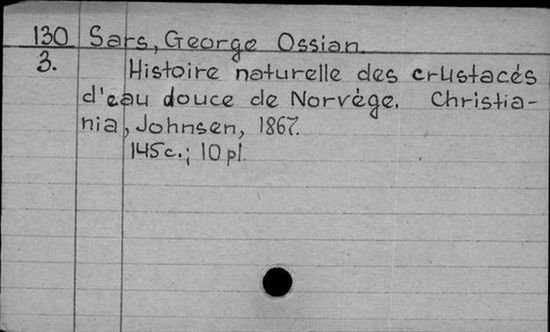 130 Sars, George Ossian.
3. Histoire naturelle des crustacés
d'eau douce de Norvège. Christia-
nia, Johnsen, 1867.
145c.; 10 pl.